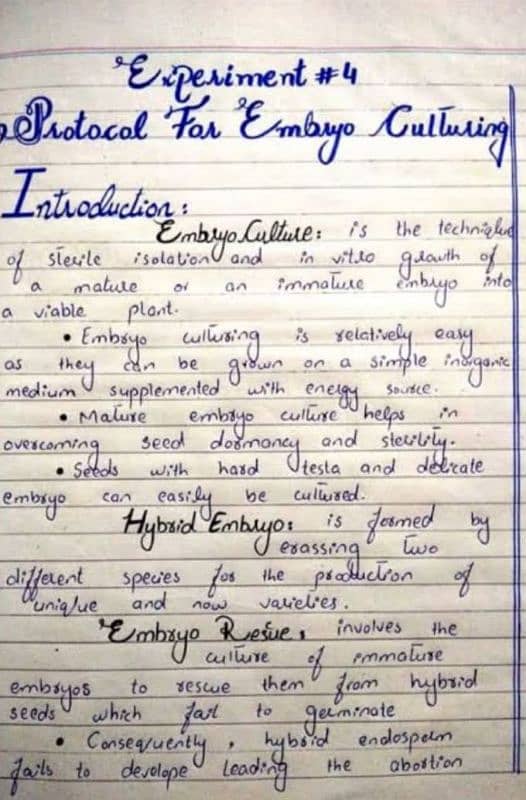 Experiment #4
Protocol For Embryo Culturing
Introduction:
Embryo Culture: is the technique
of sterile isolation and in vitro growth of
a mature or an immature embryo into
a viable plant.
• Embryo culturing is relatively easy
as they can be grown on a simple inorganic
medium supplemented with energy source.
• Mature embryo culture helps in
overcoming seed dormancy and sterility.
• Seeds with hard testa and delicate
embryo can easily be cultured.
Hybrid Embryo: is formed by
crassing two
different species for the production of
uniqlue and now varieties.
Embryo Resue: involves the
culture of immature
embryos to rescue them from hybrid
seeds which fail to germinate
• Consequently, hybrid endosperm
fails to develope leading the abortion